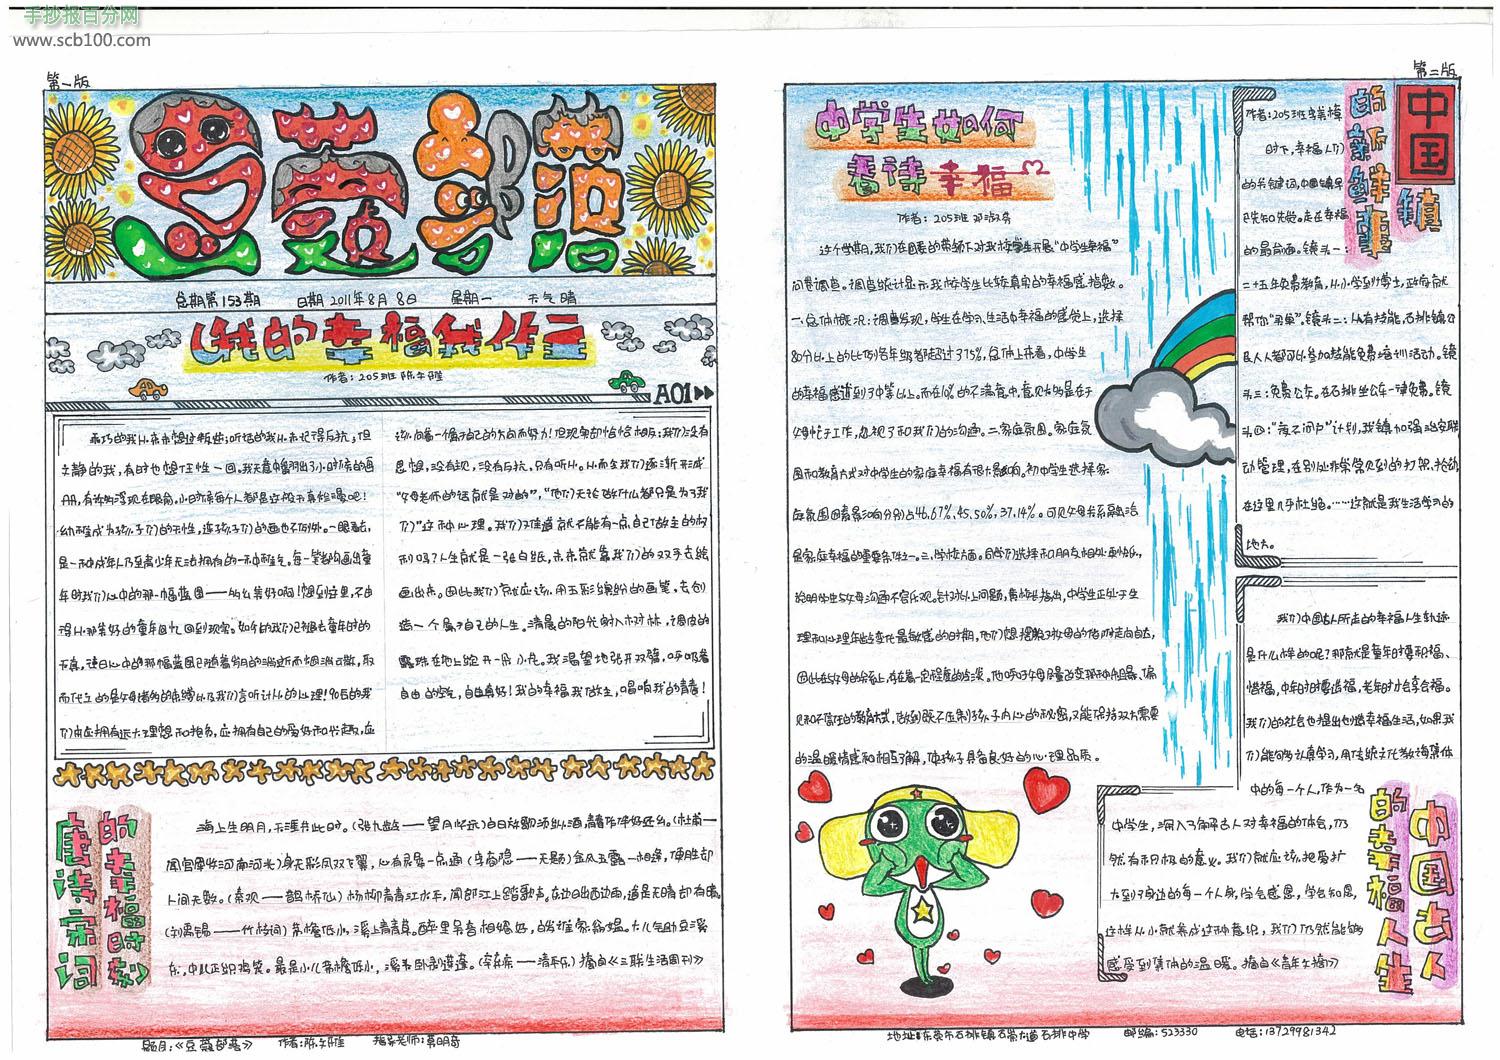 手抄报百分网
www.scb100.com
第一版
豆蔻部落
总期第153期 日期 2011年8月8日 星期一 天气晴
《我的幸福我作主》
作者：205班 陈
A01
文静的我，有时也想任性一回。我无意中翻出了小时候的画
册，有
幼稚成为孩子们的天性，连孩子们的画也不例外。一眼看去，
年时我们心中的那一幅蓝图——
得从那美好的童年回忆回到现实。如今的我们已褪去童年时的
天真，
们也应拥有远大理想和抱负，应拥有自己的爱好和兴趣，应
该向着一个属于自己的方向而努力！但现实却恰恰相反：我们没有
思想，没有主见，没有反抗，只有听从。从而令我们逐渐形成
“父母老师的话就是对的”，“他们无论做什么都只是为了我
们”这种心理。我们难道就不能有一点自己做主的权
利吗？人生就是一张白纸，未来就靠我们的双手去绘
画出来。因此我们就应该用五彩缤纷的画笔，去创
造一个属于自己的人生。清晨的阳光射入树林，调皮的
露珠在地上绽开一朵小花。我渴望地张开双臂，呼吸着
自由的空气，自由真好！我的幸福我做主，唱响我的青春！
唐诗宋词
的幸福时刻
海上生明月，天涯共此时。(张九龄——望月怀远)白日放歌须纵酒，青春作伴好还乡。(杜甫—
闻官军收河南河北)身无彩凤双飞翼，心有灵犀一点通(李商隐——无题)金风玉露一相逢，便胜却
人间无数。(秦观——鹊桥仙)杨柳青青江水平，闻郎江上踏歌声。东边日出西边雨，道是无晴却有晴。
(刘禹锡——竹枝词)茅檐低小，溪上青青草。醉里吴音相媚好，白发谁家翁媪。大儿锄豆溪
东，中儿正织鸡笼。最是小儿亡赖，溪头卧剥莲蓬。(辛弃疾——清平乐)摘自《三联生活周刊》
题目：《豆蔻部落》 作者：陈 指导老师：
第二版
中学生如何
看待幸福
作者：205班 邓淑芬
这个学期，我们在团委的带领下对我校学生开展“中学生幸福”
问卷调查。调查统计显示我校学生比较真实的幸福感指数。
一、总体概况：调查发现，学生在学习、生活中幸福的感觉上，选择
80分以上的比例各年级都超过37.5%，总体上来看，中学生
的幸福感达到了中等以上。而在10%的不满意中，意见
父母忙于工作，忽视了和我们的沟通。二、家庭氛围。家庭氛
围和教育方式对中学生的家庭幸福有很大影响。初中学生选择家
庭氛围因素影响分别占46.67%，45.50%，37.14%。可见父母关系融洽
是家庭幸福的重要条件之一。三、学校方面。同学们选择和朋友相处更快乐，
说明学生与父母沟通不容乐观。针对以上问题，黄校长指出，中学生正处于生
理和心理年龄变化最敏感的时期，他们想摆脱对父母的依附走向自立，
因此在与父母的交流上，存在着一定程度的
见和不信任的教育方式，做到既不压制孩子内心的秘密，又能保持双方需要
的温暖情感和相互了解，使孩子具备良好的心理品质。
作者：205班
中国
镇
的新鲜事
时下，幸福人们
的关键词，中国镇早
已先知先觉。走在幸福
的最前面。镜头一：
二十五年免费教育，从小学到博士，政府就
帮你“买单”。镜头二：人人有技能，石排镇公
民人人都可以参加技能免费培训活动。镜
头三：免费公车。在石排坐公车一律免费。镜
头四：“夜不闭户”计划，我镇加强治安联
动管理，在别处非常常见到的打架、抢劫
在这里几乎杜绝。……这就是我生活学习的
地方。
我们中国古人所走的幸福人生轨迹
是什么样的呢？那就是童年时要积福、
惜福，中年时要造福，老年时才会享福。
我们的社会也提出创造幸福生活，如果我
们能够认真学习，用传统文化教诲集体
中的每一个人，作为一名
中学生，深入了解古人对幸福的体会，仍
然有积极的意义。我们就应该把爱扩
大到身边的每一个人身，学会感恩，学会知恩，
这样从小就养成这种意识，我们仍然能够
感受到集体的温暖。摘自《青年文摘》
中国古人
的幸福人生
地址：东莞市石排镇石崇大道石排中学 邮编：523330 电话：13729981342